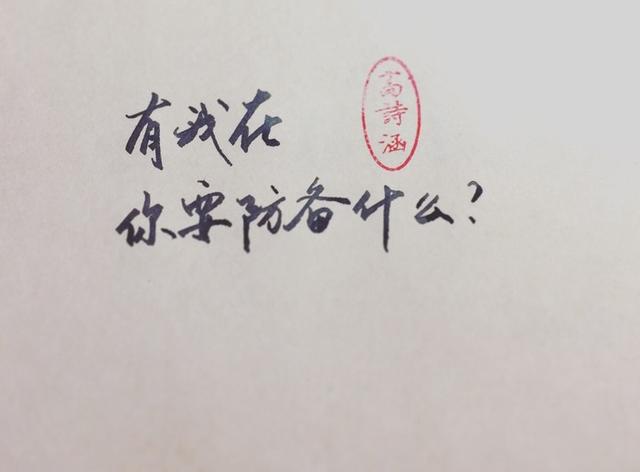 有我在
你要防备什么？
詩涵